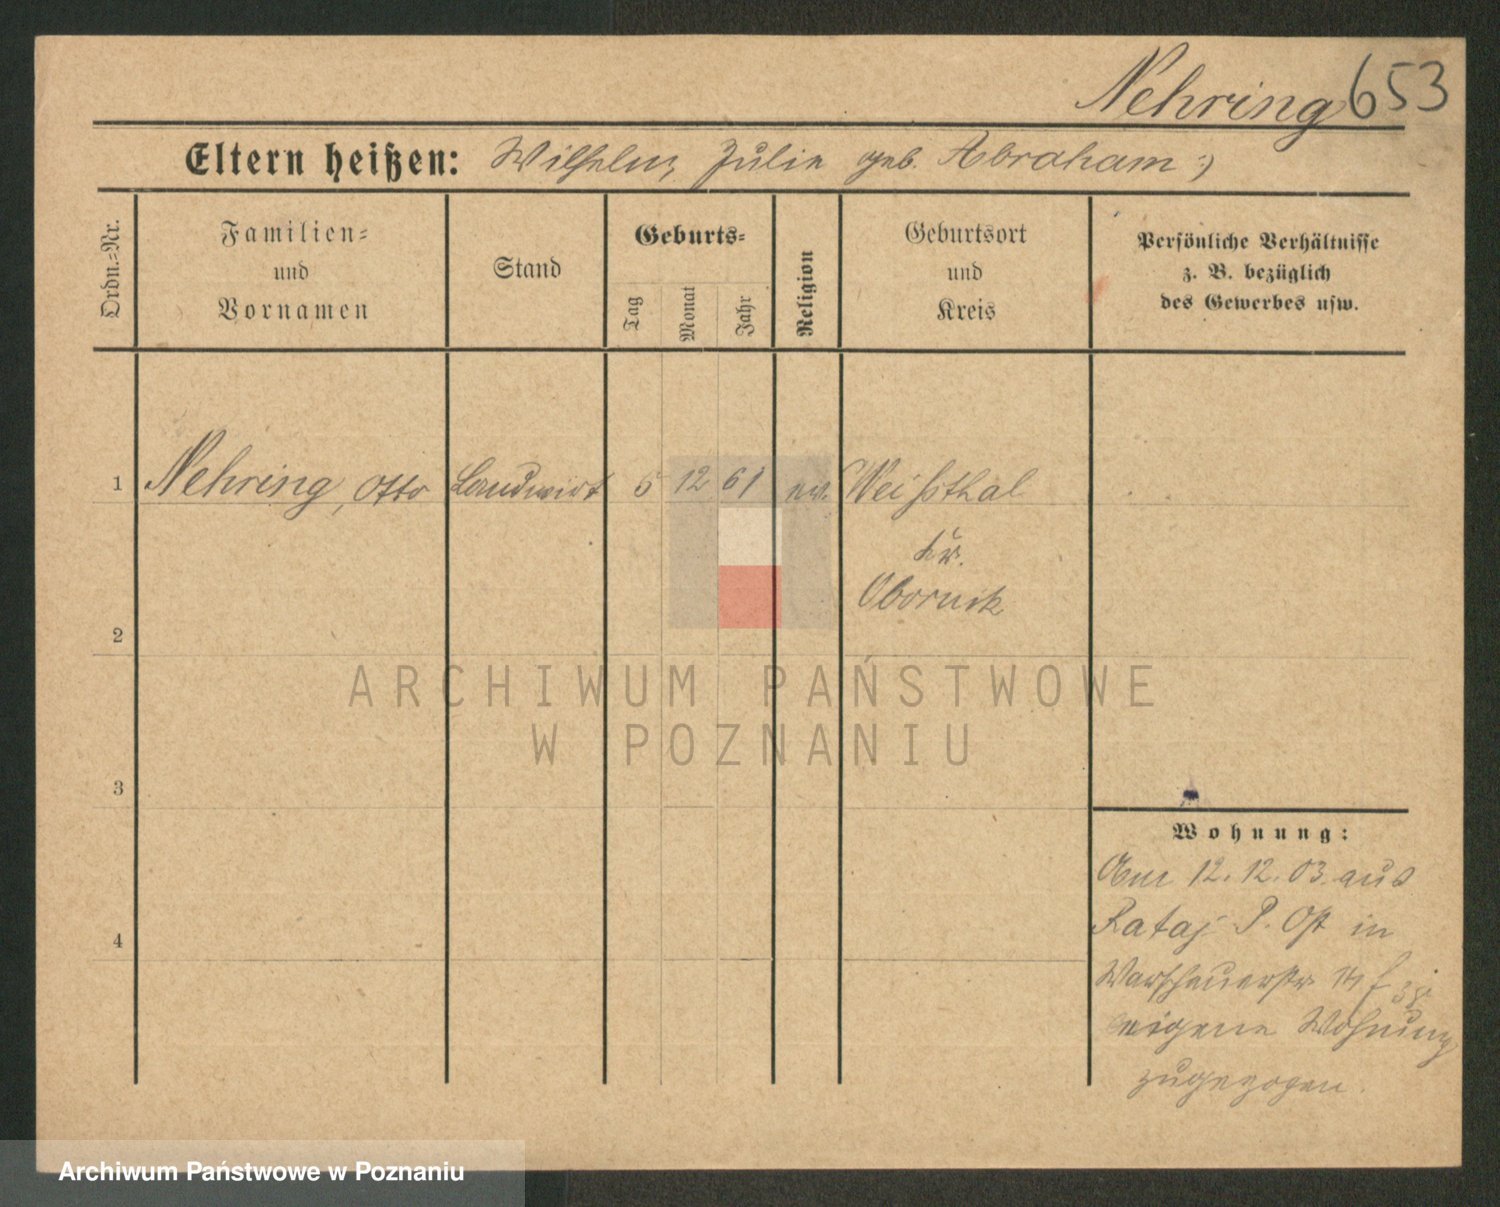 Nehring 653
Eltern heißen: Wilhelm, Julie geb. Abraham
Ordn.=Nr.
Familien=
und
Vornamen
Stand
Geburts=
Tag
Monat
Jahr
Religion
Geburtsort
und
Kreis
Persönliche Verhältnisse
z. B. bezüglich
des Gewerbes usw.
1 Nehring, Otto Landwirt 5 12 61 ev. Weißthal
Kr.
Obornik
2
3
4
Wohnung:
Am 12. 12. 03. aus
Rataj P. Ost in
Warschauerstr. 14
eigene Wohnung
zugezogen.
ARCHIWUM PAŃSTWOWE
W POZNANIU
Archiwum Państwowe w Poznaniu